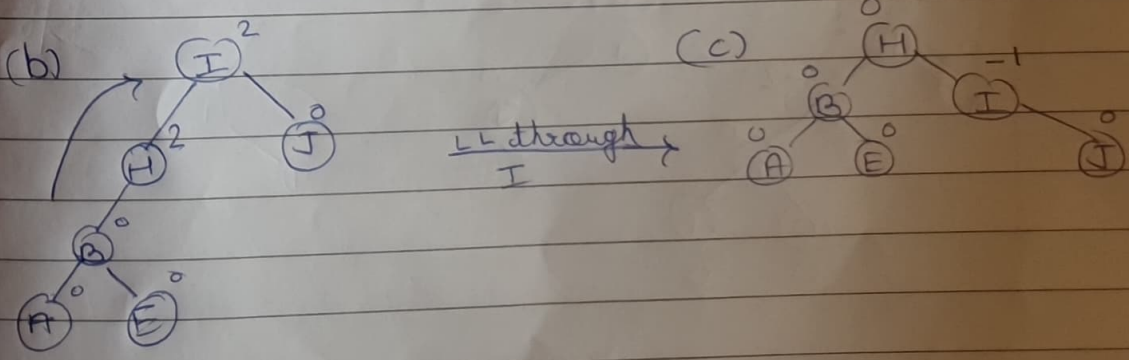 (b) I 2
H 2 J 0
B 0
A 0 E 0
LL through
I
(c) H 0
B 0 I -1
A 0 E 0 J 0